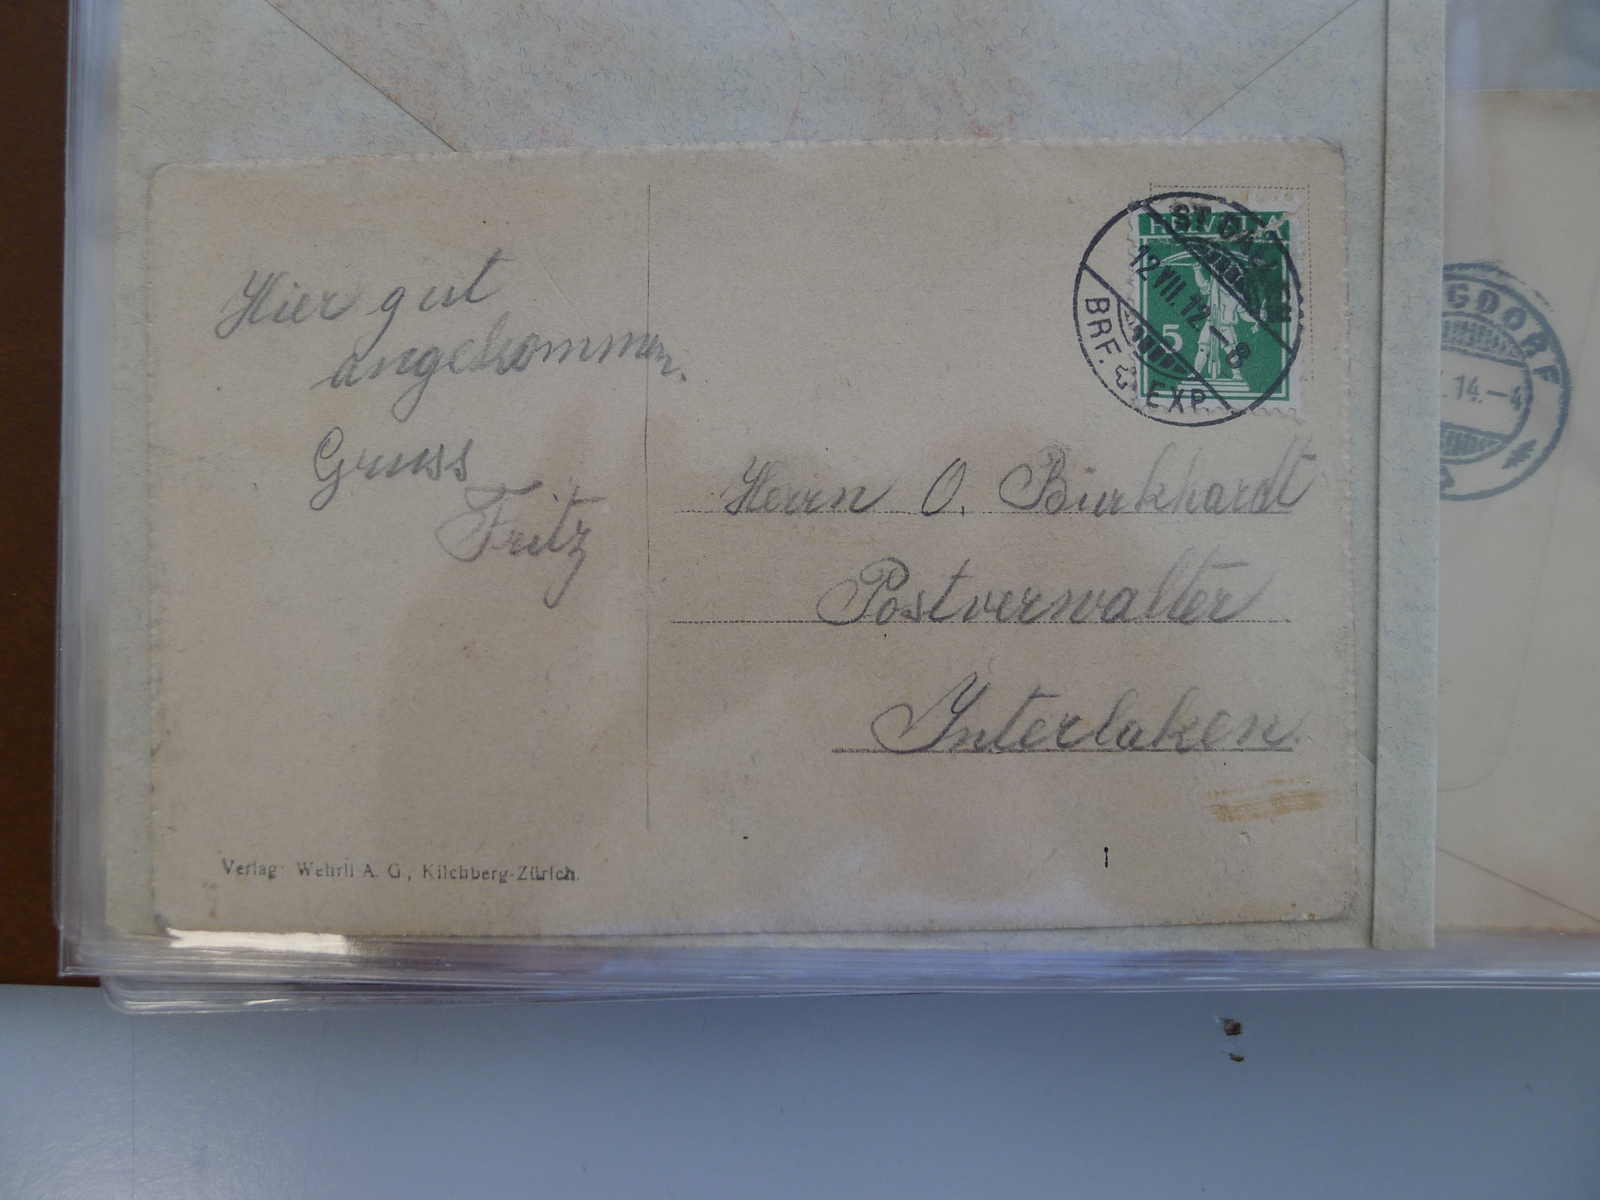 Hier gut
angekommen.
Gruss
Fritz
HELVETIA
5
12.VII.12.-8
BRF. & EXP.
Herrn O. Burkhardt
Postverwalter
Interlaken.
Verlag: Wehrli A. G., Kilchberg-Zürich.
GDORF
14.-4